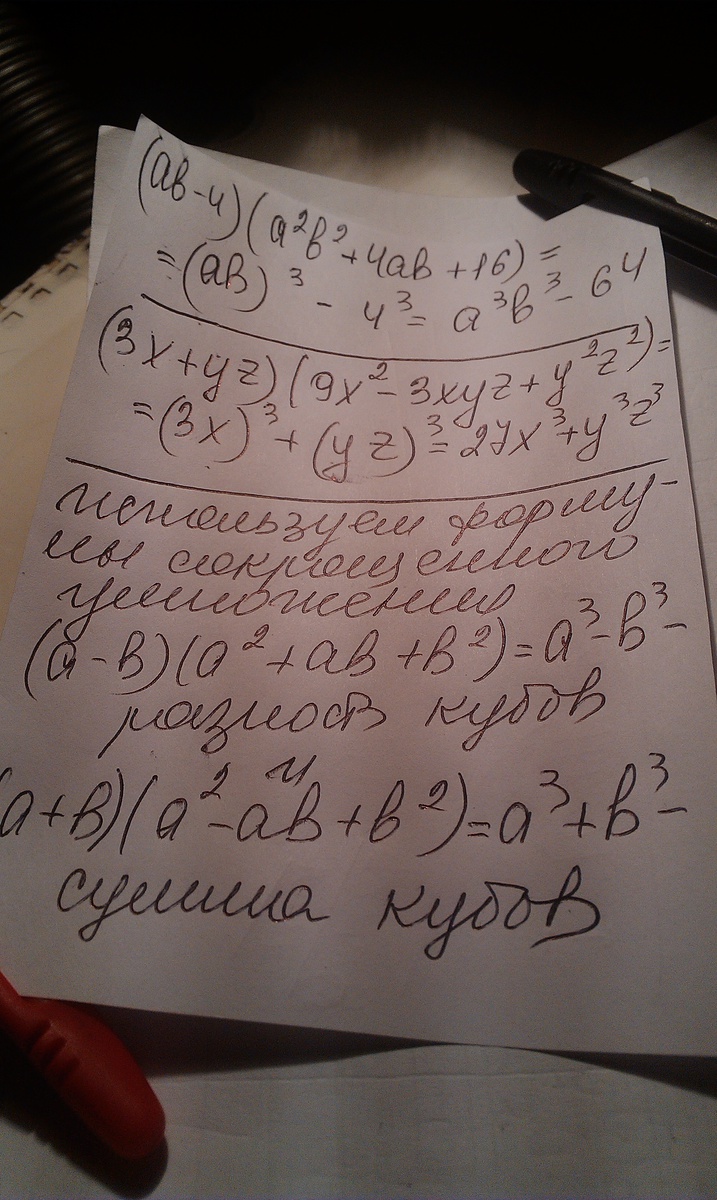 (ав-4)(a²в²+4ав+16)=
=(ав)³-4³=a³в³-64
(3x+yz)(9x²-3xyz+y²z²)=
=(3x)³+(yz)³=27x³+y³z³
используем форму-
лы сокращенного
умножения
(a-в)(a²+aв+в²)=a³-в³-
разность кубов
и
(a+в)(a²-aв+в²)=a³+в³-
сумма кубов